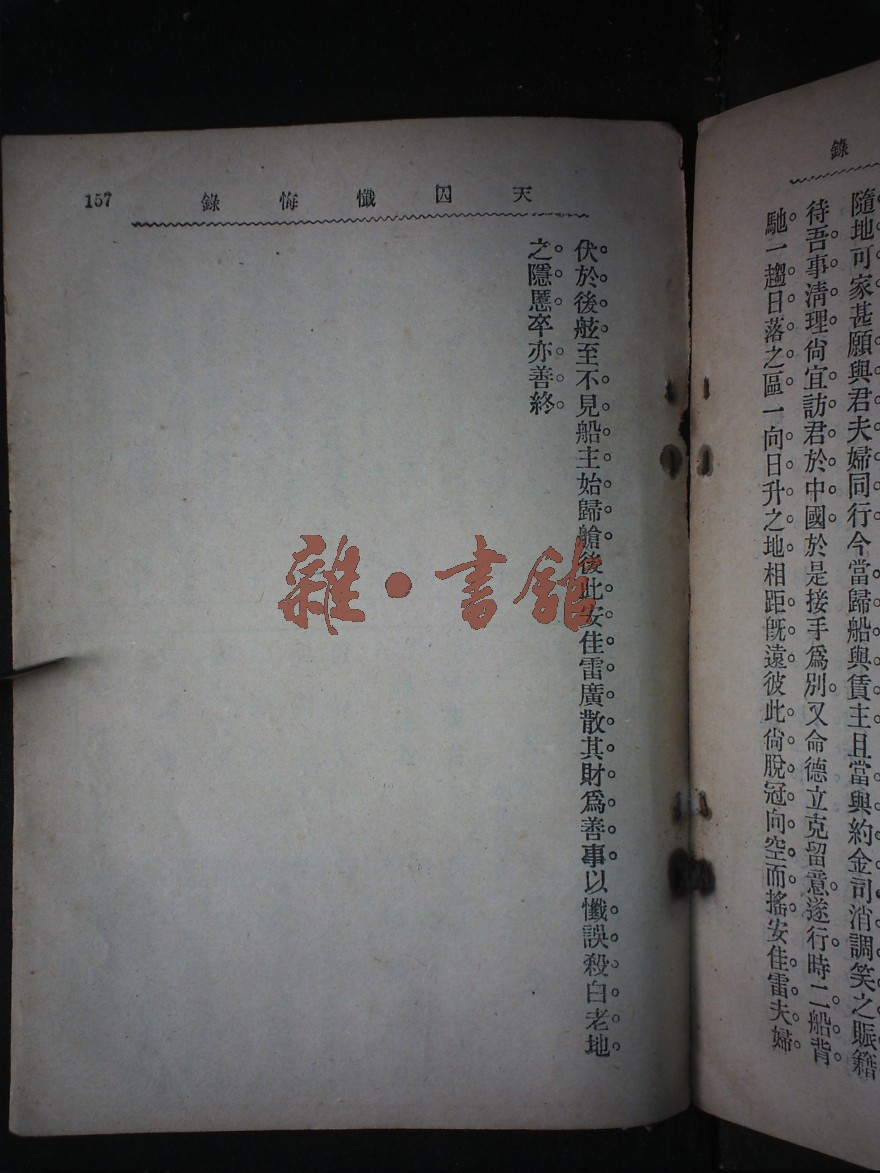 錄
隨地可家甚願與君夫婦同行今當歸船與賃主且當與約金司消調笑之賬籍
待吾事清理尙宜訪君於中國於是接手爲別又命德立克留意遂行時二船背
馳一趨日落之區一向日升之地相距旣遠彼此尙脫冠向空而搖安佳雷夫婦
天囚懺悔錄
157
伏於後舷至不見船主始歸艙後此安佳雷廣散其財爲善事以懺誤殺白老地
之隱慝卒亦善終
雜·書館